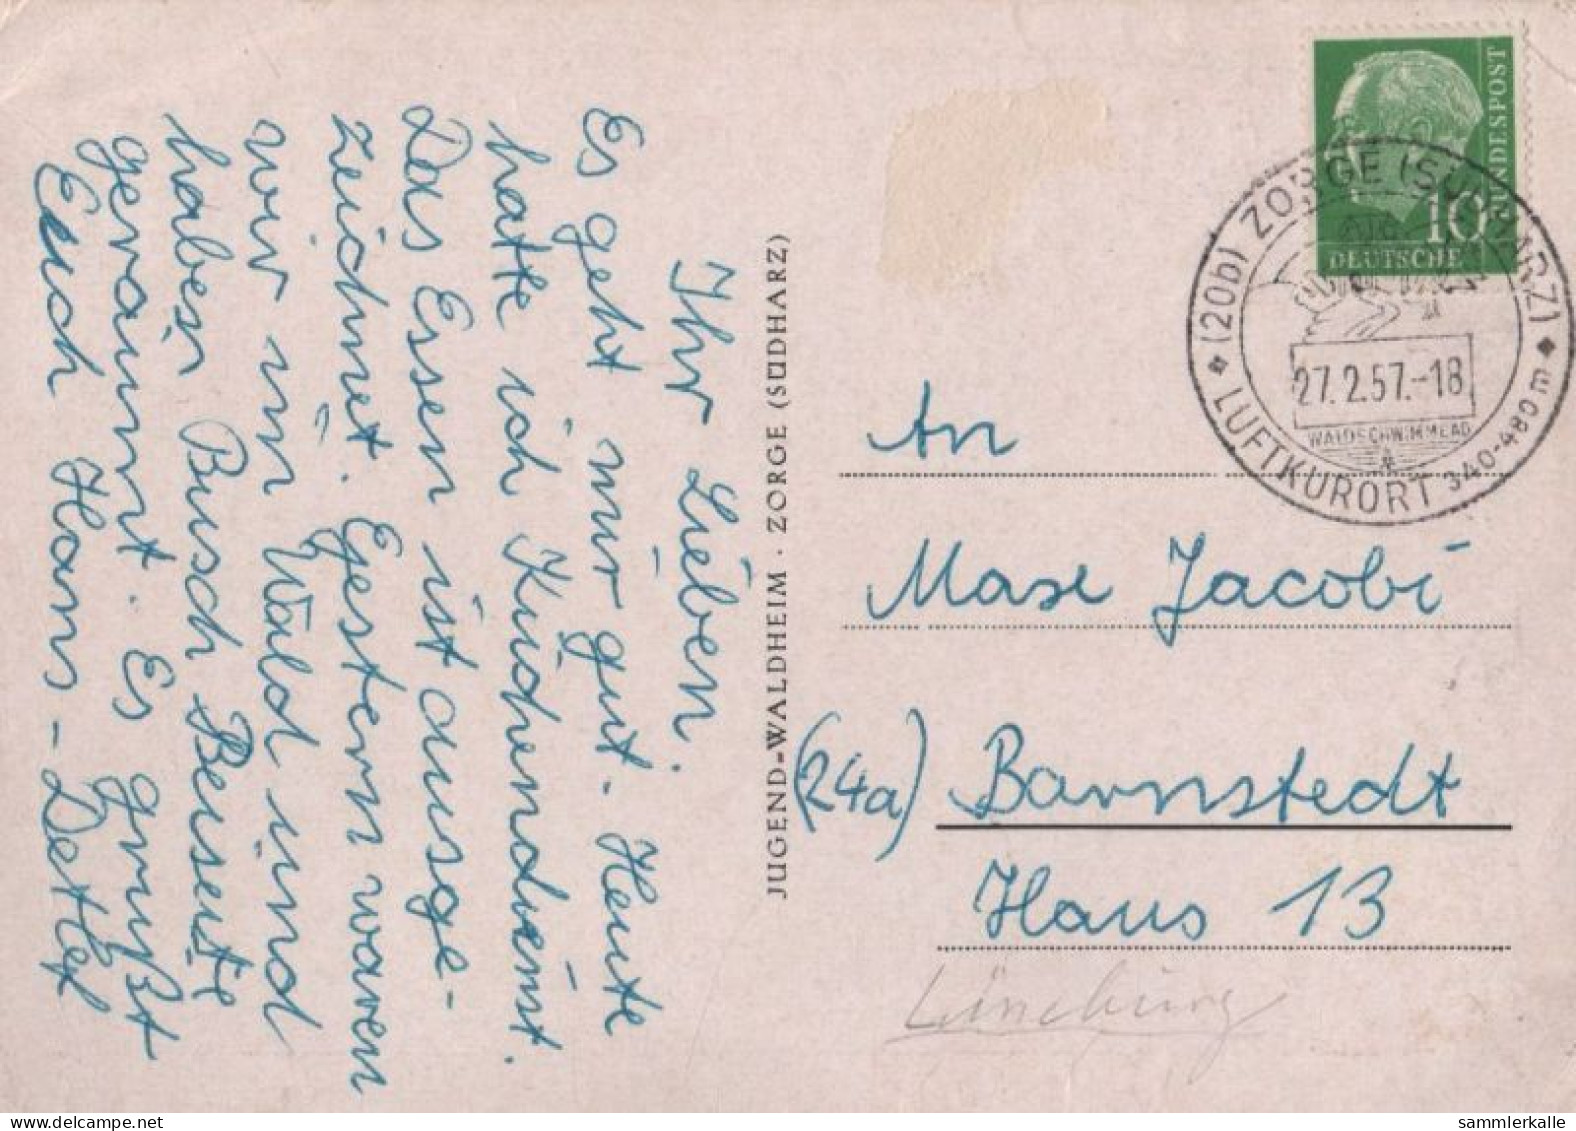 Ihr Lieben.
Es geht mir gut. Heute
hatte ich Küchendienst.
Das Essen ist ausge-
zeichnet. Gestern waren
wir im Wald und
haben Busch Benseite
geräumt. Es grüßt
Euch Hans-Detlef
JUGEND-WALDHEIM · ZORGE (SÜDHARZ)
DEUTSCHE BUNDESPOST
10
(20b) ZORGE (SÜDHARZ)
27.2.57.-18
WALDSCHWIMMBAD
LUFTKURORT 340-480m
An
Max Jacobi
(24a) Barnstedt
Haus 13
Lüneburg
sammlerkalle